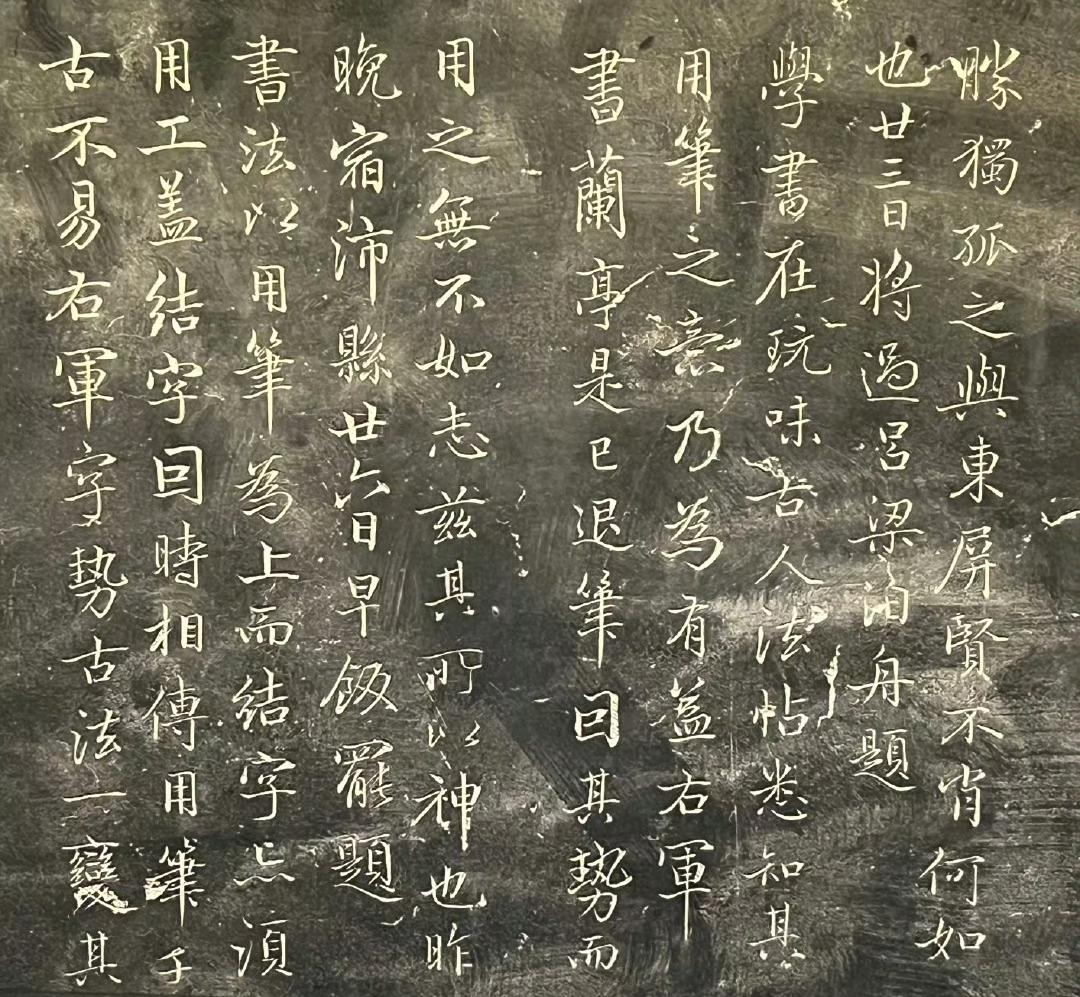 勝獨孤之與東屏賢不肖何如
也廿三日將過呂梁泊舟題
學書在玩味古人法帖悉知其
用筆之意乃為有益右軍
書蘭亭是已退筆因其勢而
用之無不如志茲其所以神也昨
晚宿沛縣廿六日早飯罷題
書法以用筆為上而結字亦須
用工蓋結字因時相傳用筆千
古不易右軍字勢古法一變其